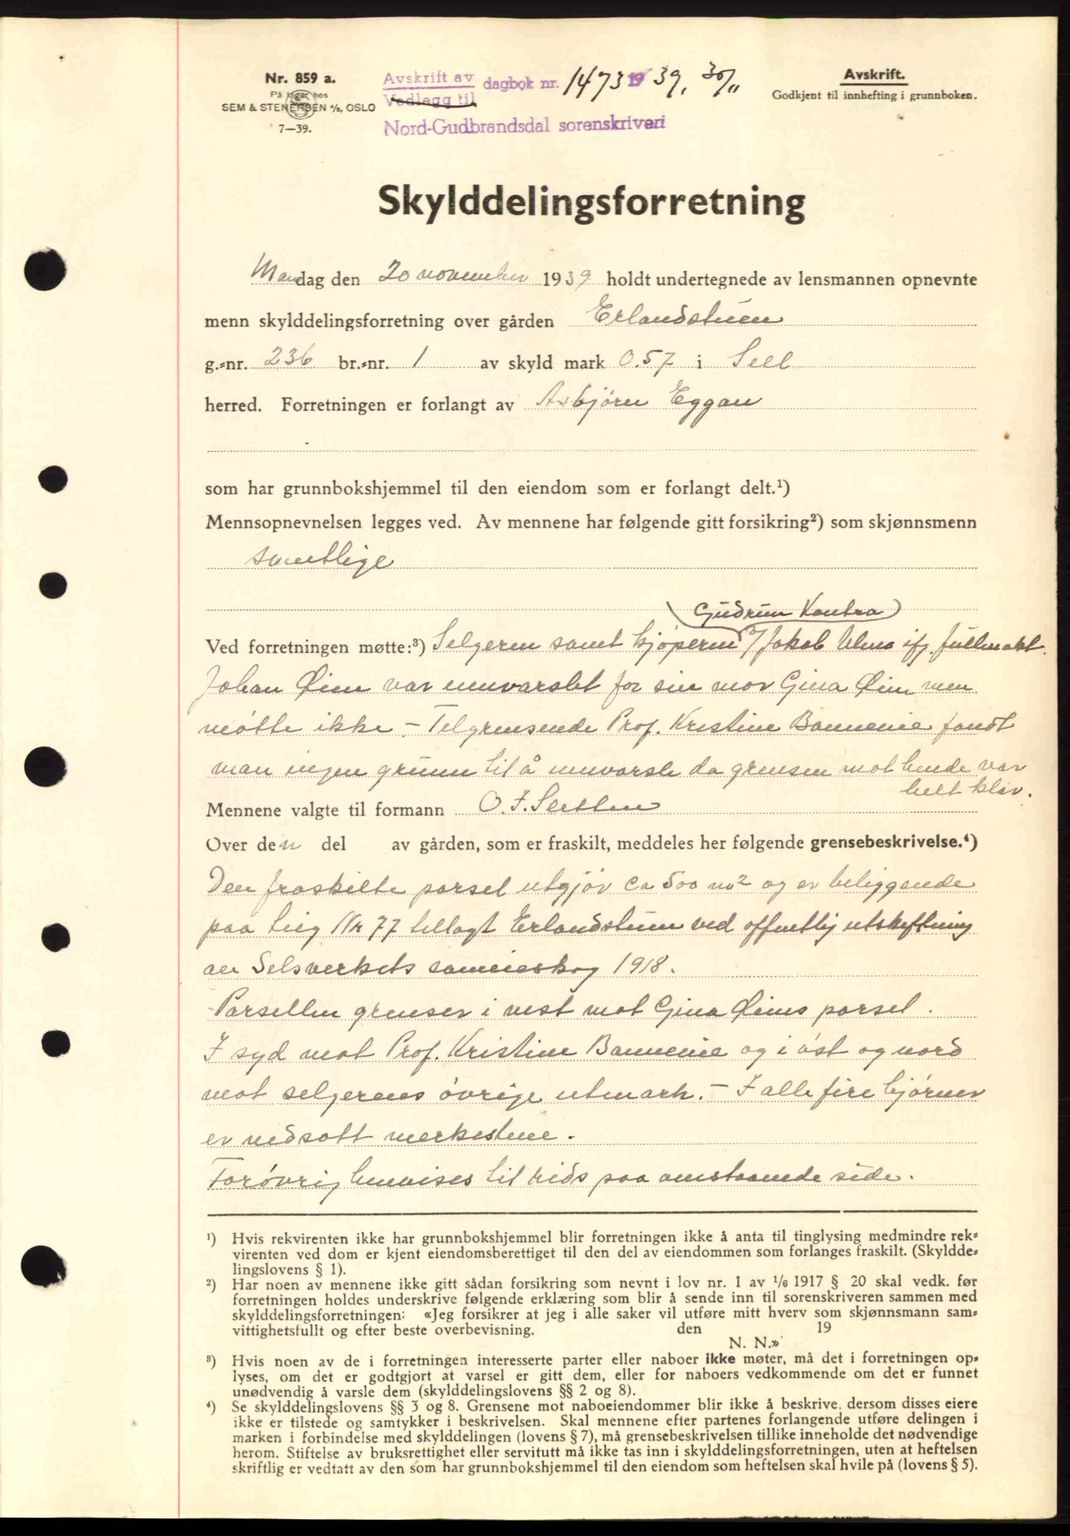 Nr. 859 a.
På lager hos
SEM & STENERSEN A/S, OSLO
7—39.
Avskrift av dagbok nr. 1473 1939, 30/11
Vedlegg til
Nord-Gudbrandsdal sorenskriveri
Avskrift.
Godkjent til innhefting i grunnboken.
Skylddelingsforretning
Mandag den 20 november 1939 holdt undertegnede av lensmannen opnevnte
menn skylddelingsforretning over gården Erlandstuen
g.-nr. 236 br.-nr. 1 av skyld mark 0.57 i Sell
herred. Forretningen er forlangt av Asbjørn Eggan
som har grunnbokshjemmel til den eiendom som er forlangt delt.¹)
Mennsopnevnelsen legges ved. Av mennene har følgende gitt forsikring²) som skjønnsmenn
samtlige
Gudrun Kontra
Ved forretningen møtte:³) Selgeren samt kjøperen v/ Jakob Ulmo ifg. fullmakt.
Johan Øien var innvarslet for sin mor Gina Øien men
møtte ikke — Tilgrensende Prof. Kristine Bonnevie fandt
man ingen grunn til å innvarsle da grensen mot hende var
helt klar.
Mennene valgte til formann O. J.
Over den del av gården, som er fraskilt, meddeles her følgende grensebeskrivelse.⁴)
Den fraskilte parsel utgjør ca 500 m² og er beliggende
paa teig Nr 77 tillagt Erlandstuen ved offentlig utskiftning
av Selsverkets sameieskog 1918.
Parsellen grenser i vest mot Gina Øiens parsel.
I syd mot Prof. Kristine Bonnevie og i øst og nord
mot selgerens øvrige utmark. — I alle fire hjørner
er nedsatt merkestene.
Forøvrig henvises til rids paa omstaaende side.
¹) Hvis rekvirenten ikke har grunnbokshjemmel blir forretningen ikke å anta til tinglysing medmindre rek-
virenten ved dom er kjent eiendomsberettiget til den del av eiendommen som forlanges fraskilt. (Skyldde-
lingslovens § 1).
²) Har noen av mennene ikke gitt sådan forsikring som nevnt i lov nr. 1 av 1/6 1917 § 20 skal vedk. før
forretningen holdes underskrive følgende erklæring som blir å sende inn til sorenskriveren sammen med
skylddelingsforretningen: «Jeg forsikrer at jeg i alle saker vil utføre mitt hverv som skjønnsmann sam-
vittighetsfullt og efter beste overbevisning. den 19
N. N.»
³) Hvis noen av de i forretningen interesserte parter eller naboer ikke møter, må det i forretningen op-
lyses, om det er godtgjort at varsel er gitt dem, eller for naboers vedkommende om det er funnet
unødvendig å varsle dem (skylddelingslovens §§ 2 og 8).
⁴) Se skylddelingslovens §§ 3 og 8. Grensene mot naboeiendommer blir ikke å beskrive, dersom disses eiere
ikke er tilstede og samtykker i beskrivelsen. Skal mennene efter partenes forlangende utføre delingen i
marken i forbindelse med skylddelingen (lovens § 7), må grensebeskrivelsen tillike inneholde det nødvendige
herom. Stiftelse av bruksrettighet eller servitutt må ikke tas inn i skylddelingsforretningen, uten at heftelsen
skriftlig er vedtatt av den som har grunnbokshjemmel til den eiendom som heftelsen skal hvile på (lovens § 5).